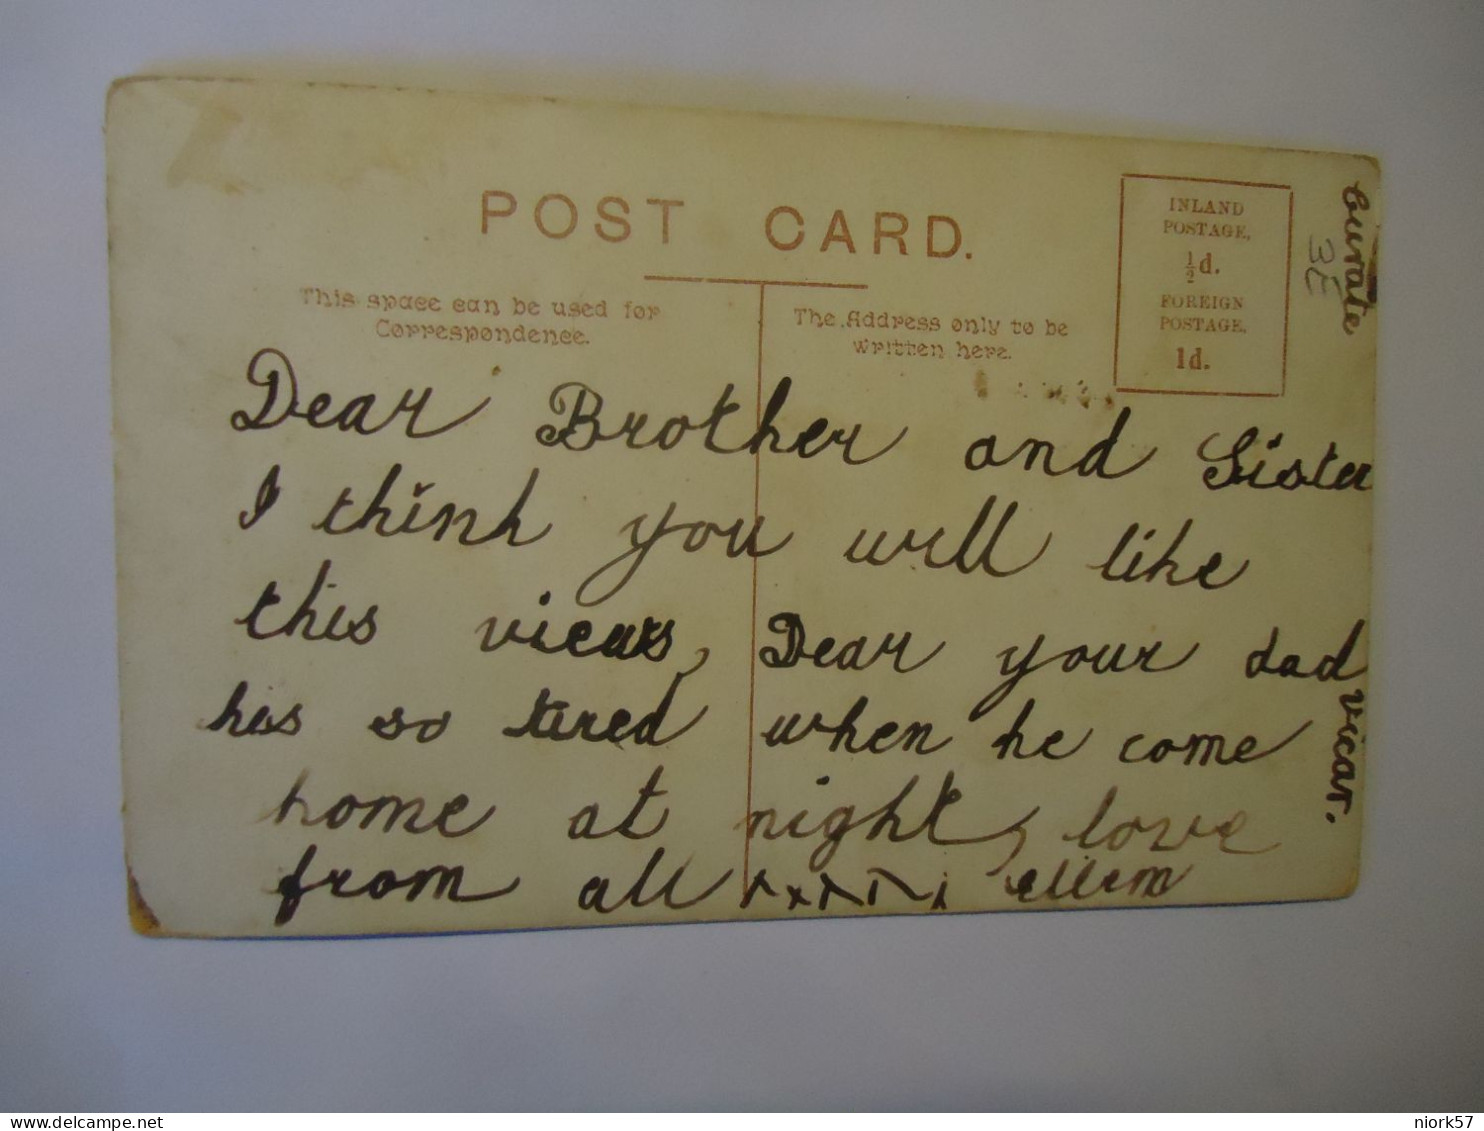 POST CARD.
INLAND
POSTAGE.
½d.
FOREIGN
POSTAGE.
1d.
This space can be used for
Correspondence.
The Address only to be
written here.
Dear Brother and Sister
I think you will like
this vicars, Dear your dad
has so tired when he come
home at night, love
from all xxxxxx ellem
Curate
3E
vicar.
niork57